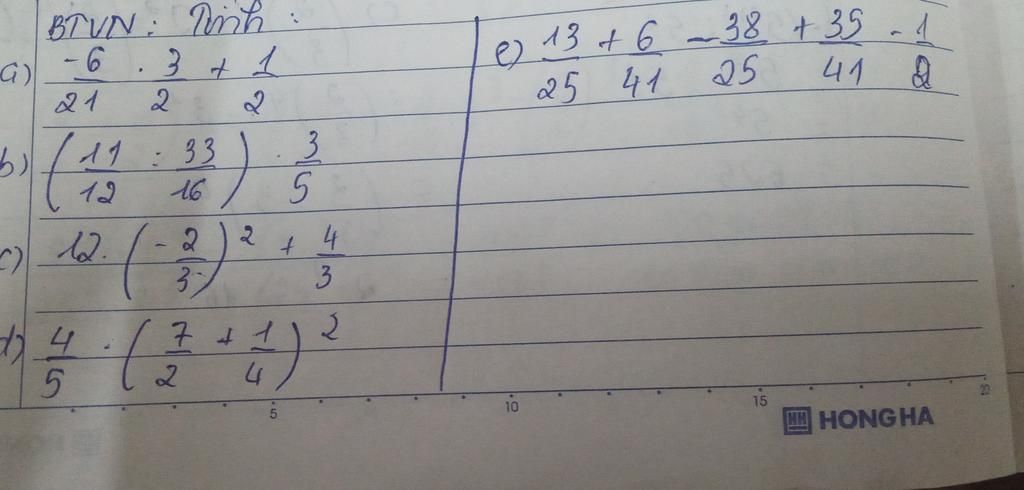 BTVN: Tính:
a) -6/21 . 3/2 + 1/2
b) (11/12 : 33/16) . 3/5
c) 12. (-2/3)² + 4/3
d) 4/5 . (7/2 + 1/4)²
e) 13/25 + 6/41 - 38/25 + 35/41 - 1/2
5 10 15 20
HONG HA